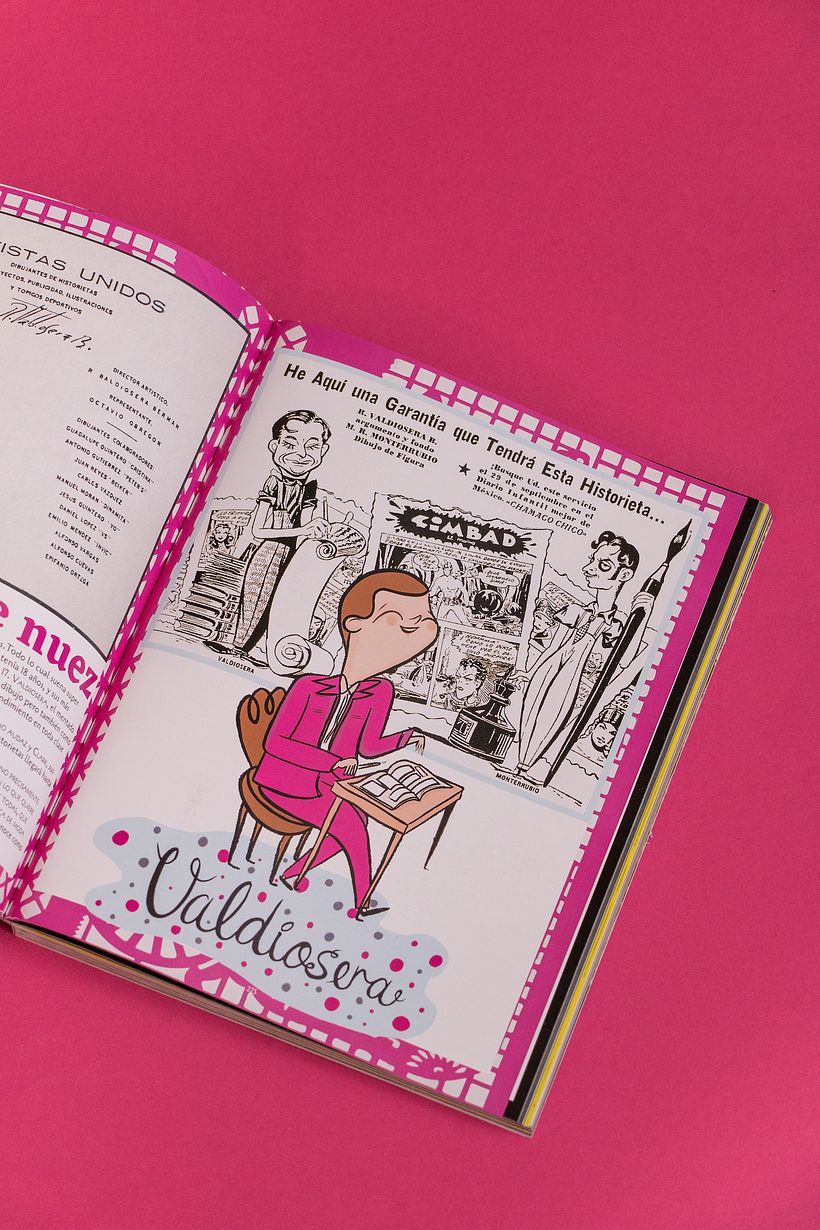 ISTAS UNIDOS
DIBUJANTES DE HISTORIETAS
YECTOS, PUBLICIDAD, ILUSTRACIONES
Y TOPICOS DEPORTIVOS
DIRECTOR ARTISTICO,
R BALDIOSERA BERMAN
REPRESENTANTE,
OCTAVIO OBREGON
DIBUJANTES COLABORADORES:
GUADALUPE QUINTERO "CRISTINA"
ANTONIO GUTIERREZ "PETER'S"
JUAN REYES "BEIKER"
CARLOS VAZQUEZ
MANUEL MORAN "DINAMITA"
JESUS QUINTERO "YO"
DANIEL LOPEZ "US"
EMILIO MENDEZ "INVIC"
ALFONSO VARGAS
ALFONSO CUEVAS
EPIFANIO ORTIGA
e nuez
s. Todo lo cual suena súper
tenía 18 años, y sus más
17. VALDIOSERA, el mentado
dibujo pero también como
endimiento en toda clase
IO AUDAZ Y CLARK, sus
storietas llegará hasta
He Aquí una Garantía que Tendrá Esta Historieta...
R. VALDIOSERA B.
argumento y fondo
M. R. MONTERRUBIO
Dibujo de Figura
¡Busque Ud. este servicio
el 29 de septiembre en el
Diario Infantil mejor de
México. «CHAMACO CHICO»
SIMBAD
VALDIOSERA
MONTERRUBIO
Valdiosera
225